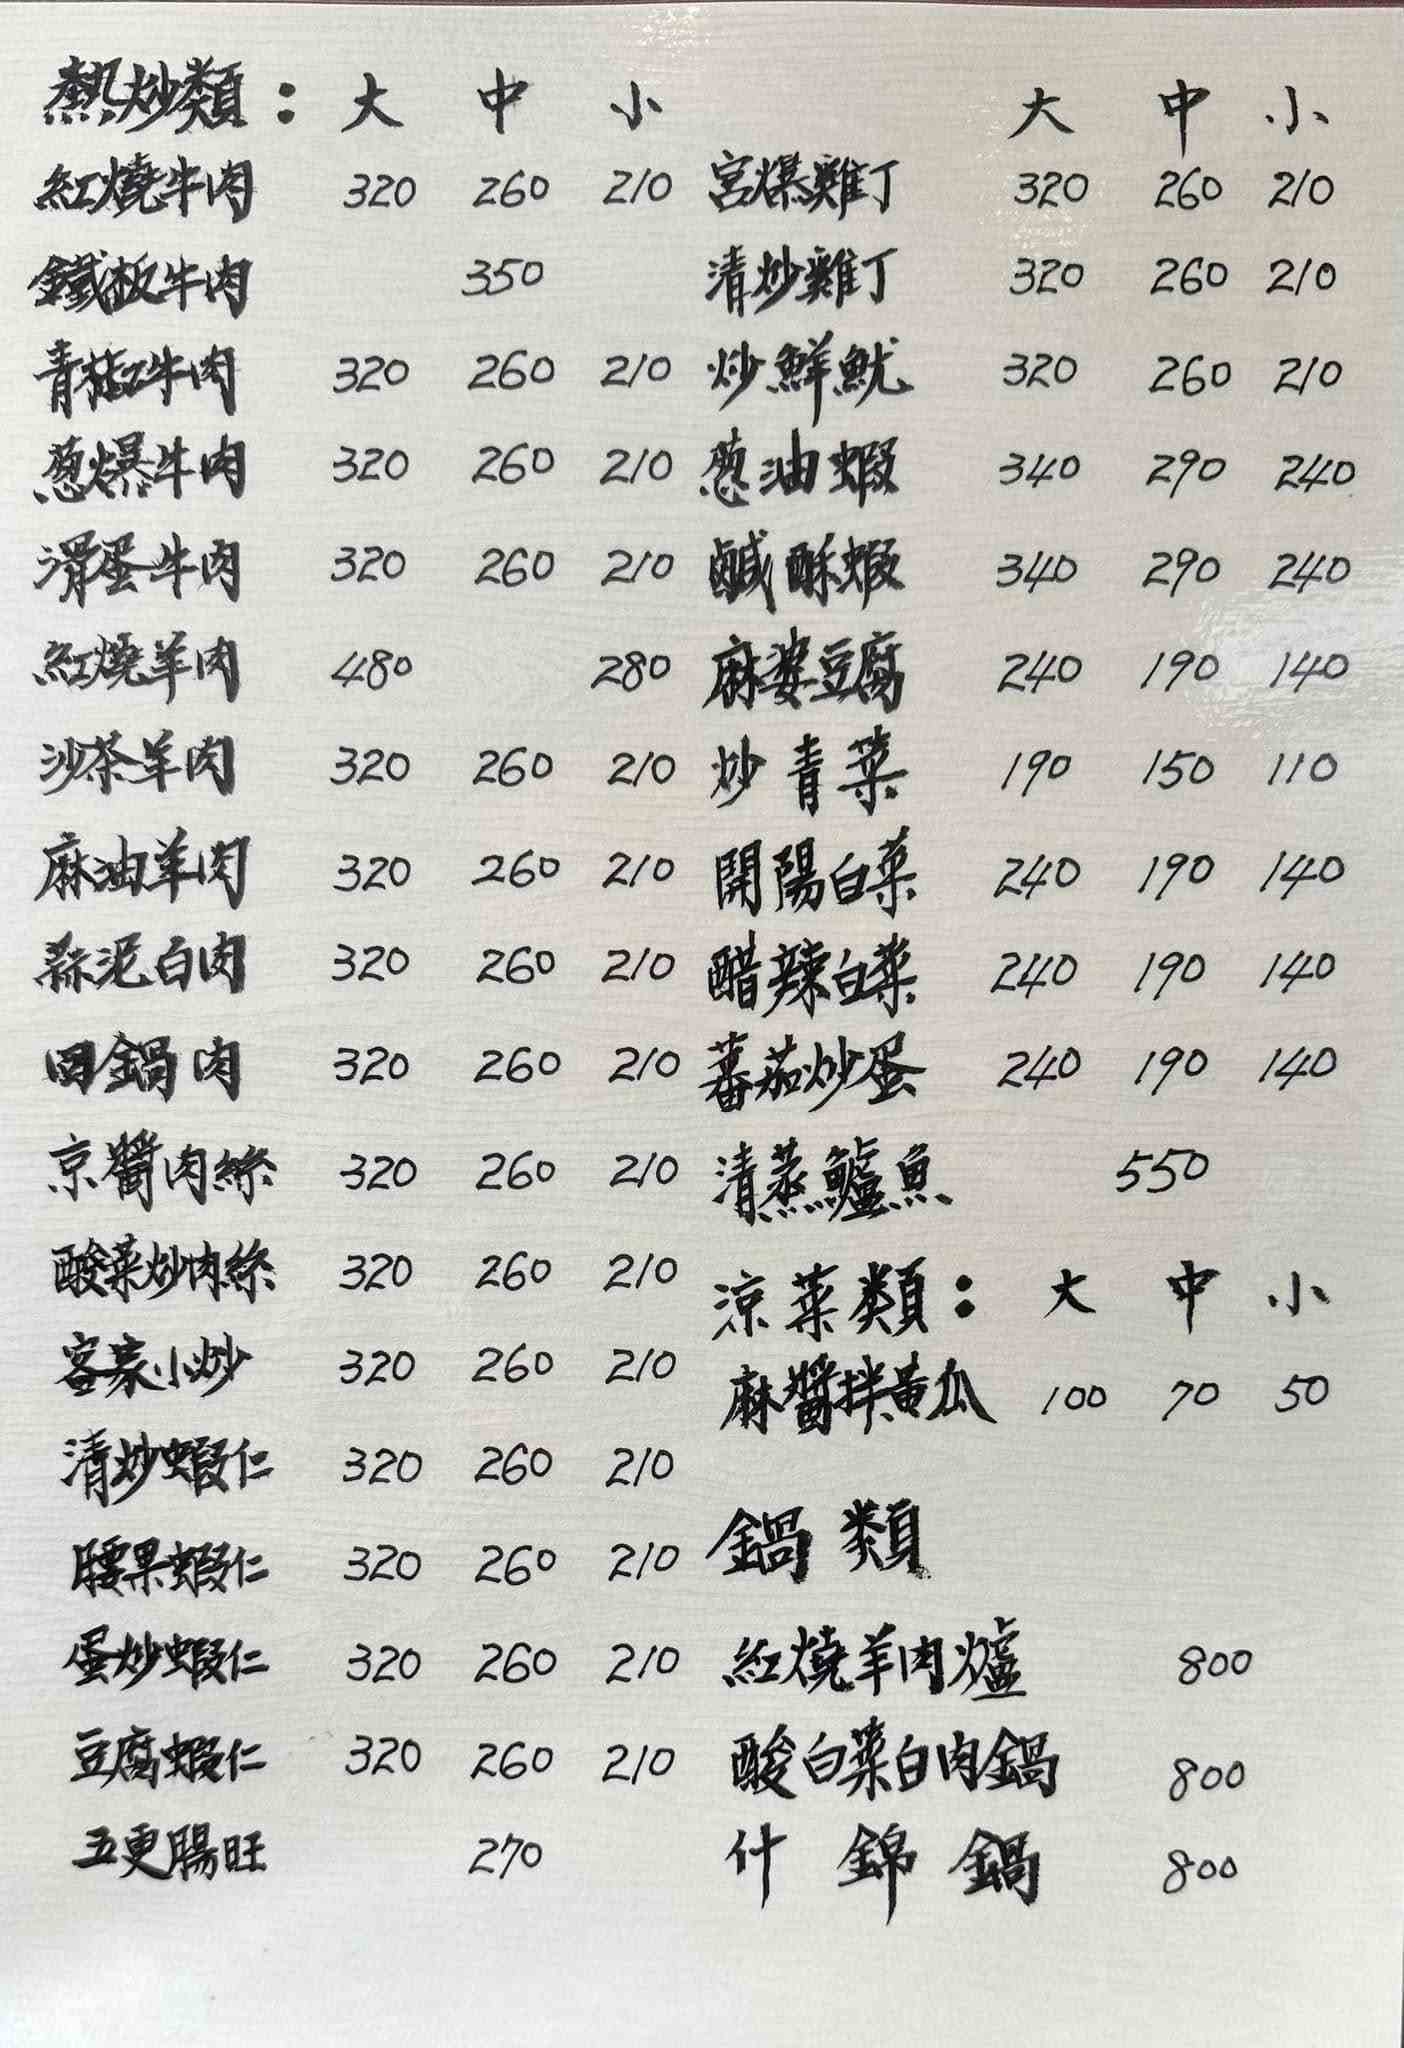 熱炒類： 大 中 小
紅燒牛肉 320 260 210
鐵板牛肉 350
青椒牛肉 320 260 210
蔥爆牛肉 320 260 210
滑蛋牛肉 320 260 210
紅燒羊肉 480 280
沙茶羊肉 320 260 210
麻油羊肉 320 260 210
蒜泥白肉 320 260 210
回鍋肉 320 260 210
京醬肉絲 320 260 210
酸菜炒肉絲 320 260 210
客家小炒 320 260 210
清炒蝦仁 320 260 210
腰果蝦仁 320 260 210
蛋炒蝦仁 320 260 210
豆腐蝦仁 320 260 210
五更腸旺 270
大 中 小
宮爆雞丁 320 260 210
清炒雞丁 320 260 210
炒鮮魷 320 260 210
蔥油蝦 340 290 240
鹹酥蝦 340 290 240
麻婆豆腐 240 190 140
炒青菜 190 150 110
開陽白菜 240 190 140
醋辣白菜 240 190 140
蕃茄炒蛋 240 190 140
清蒸鱸魚 550
涼菜類： 大 中 小
麻醬拌黃瓜 100 70 50
鍋類
紅燒羊肉爐 800
酸白菜白肉鍋 800
什錦鍋 800